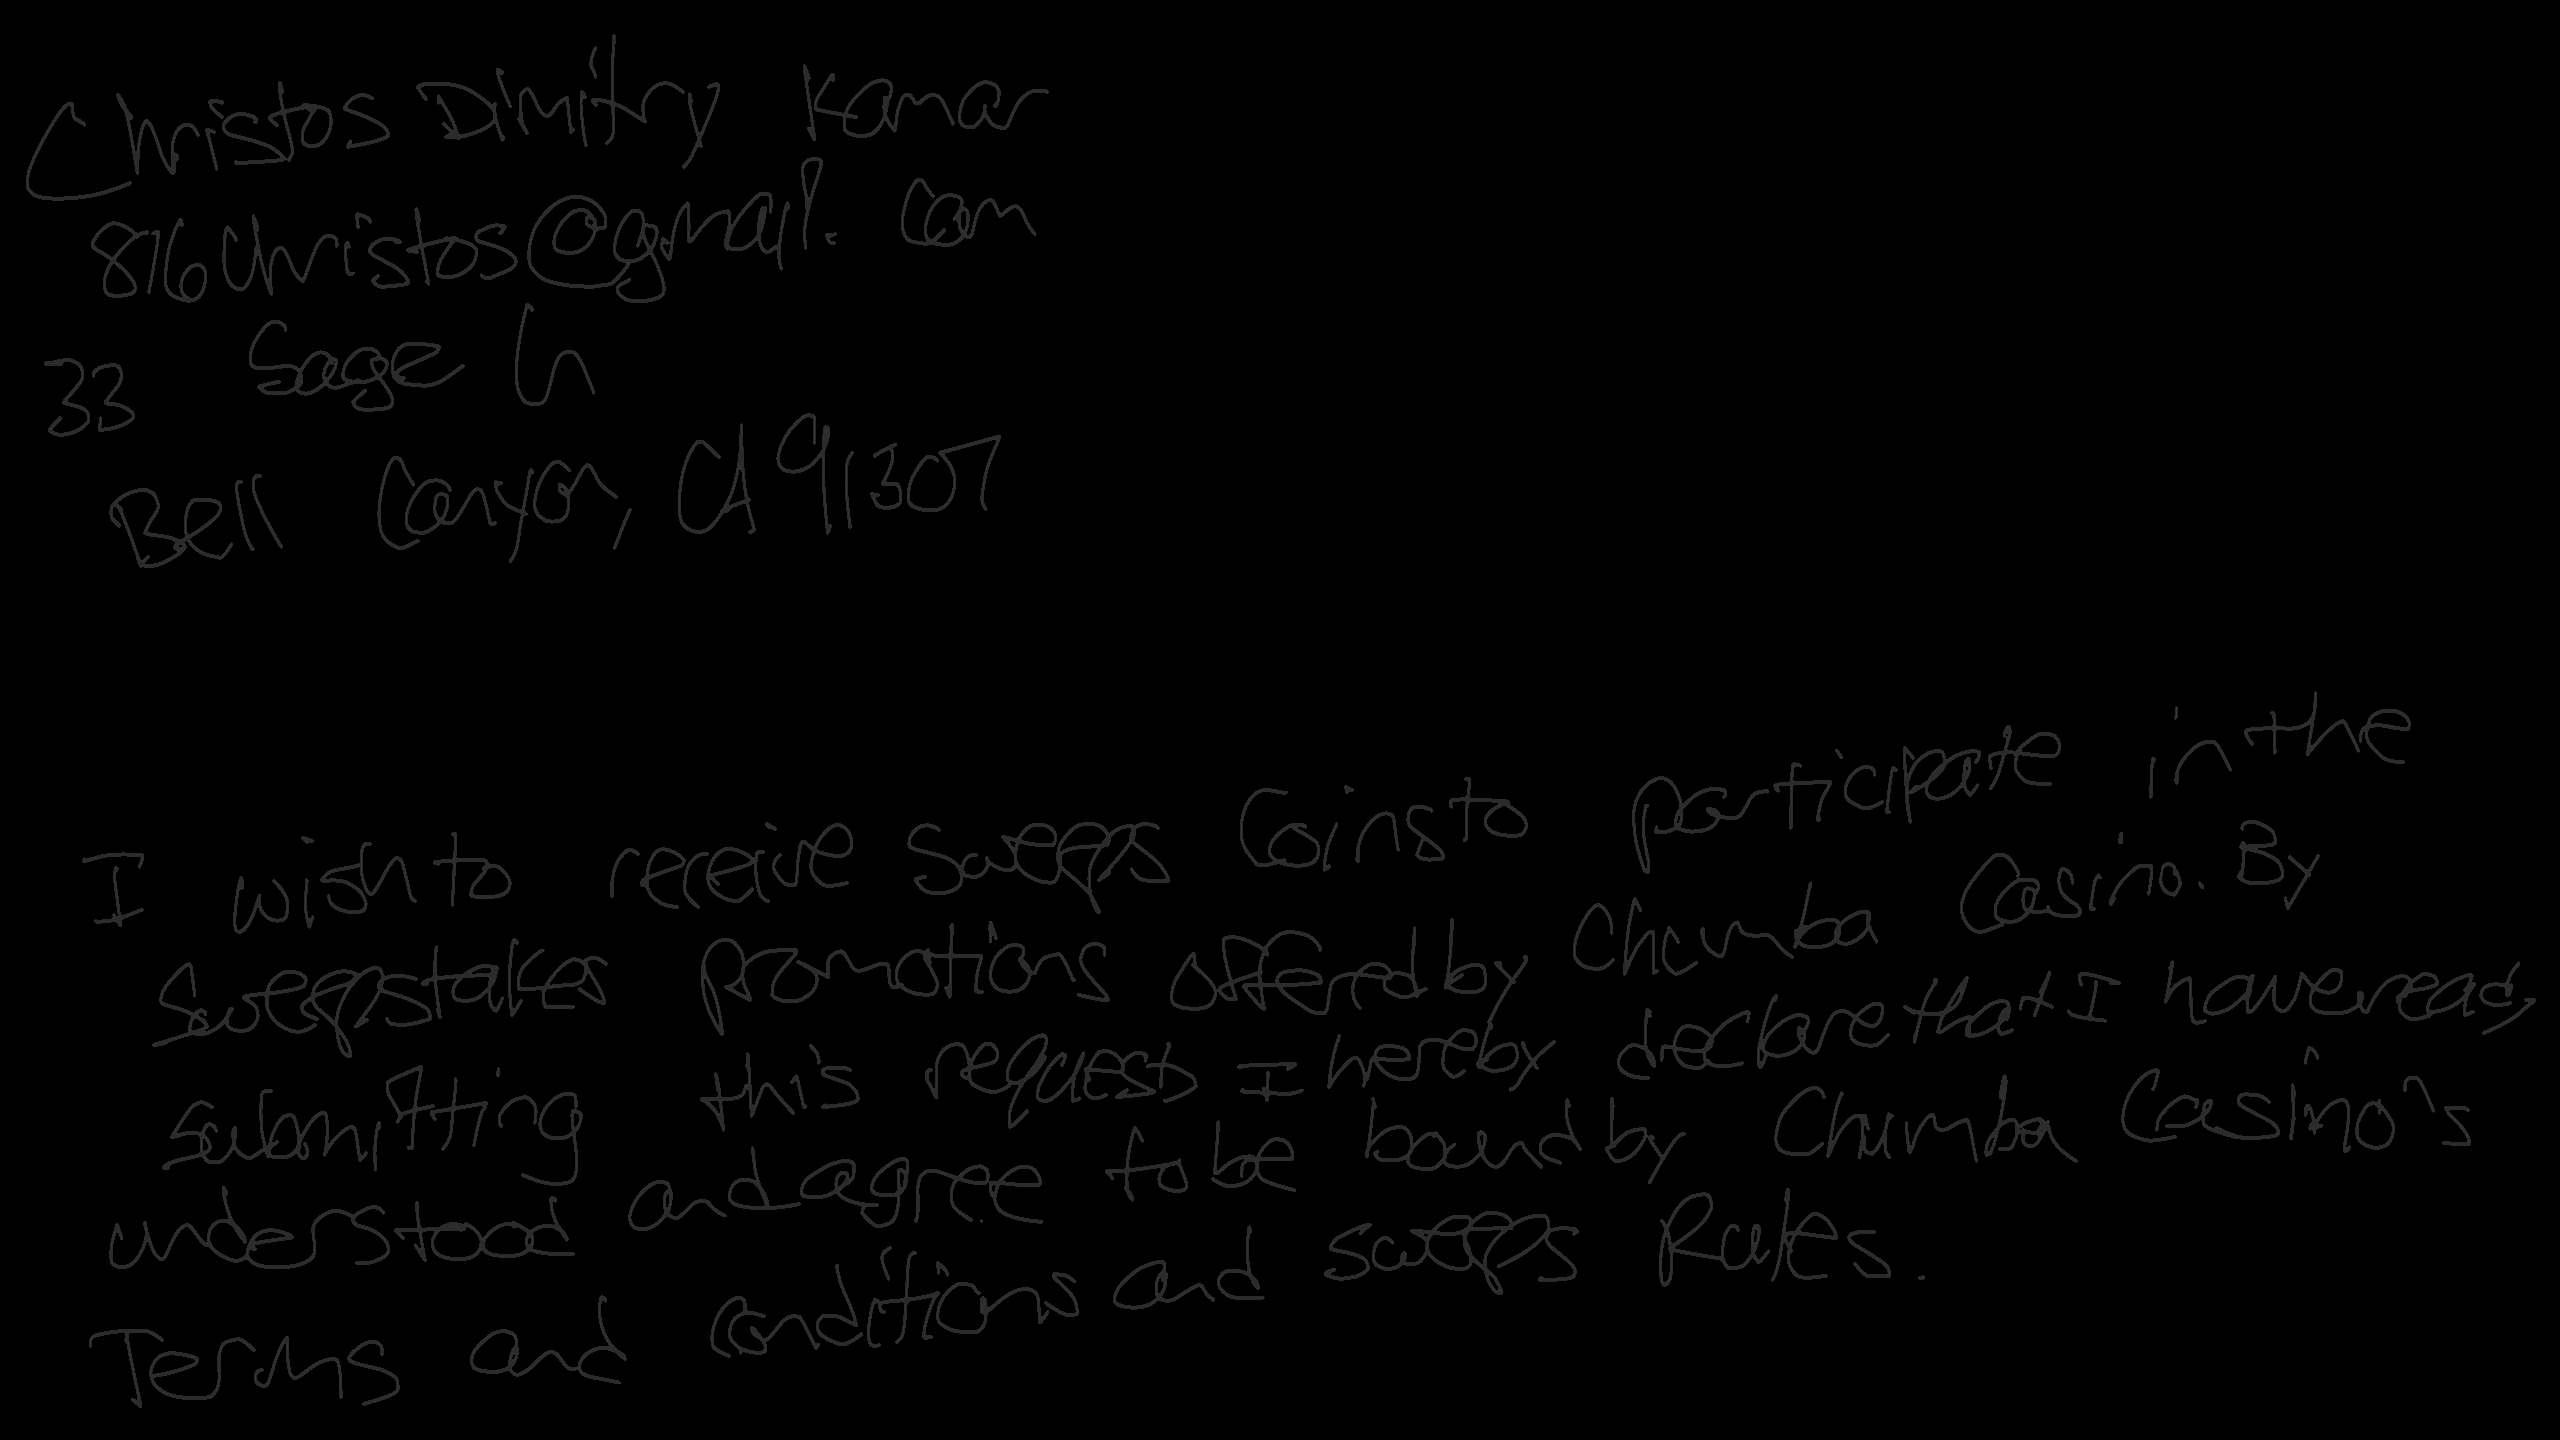 Christos Dimitry Kamar
816christos@gmail.com
33 Sage Ln
Bell Canyon, CA 91307
I wish to receive Sweeps Coins to participate in the
Sweepstakes promotions offered by Chumba Casino. By
submitting this request, I hereby declare that I have read,
understood and agree to be bound by Chumba Casino's
Terms and conditions and sweeps Rules.